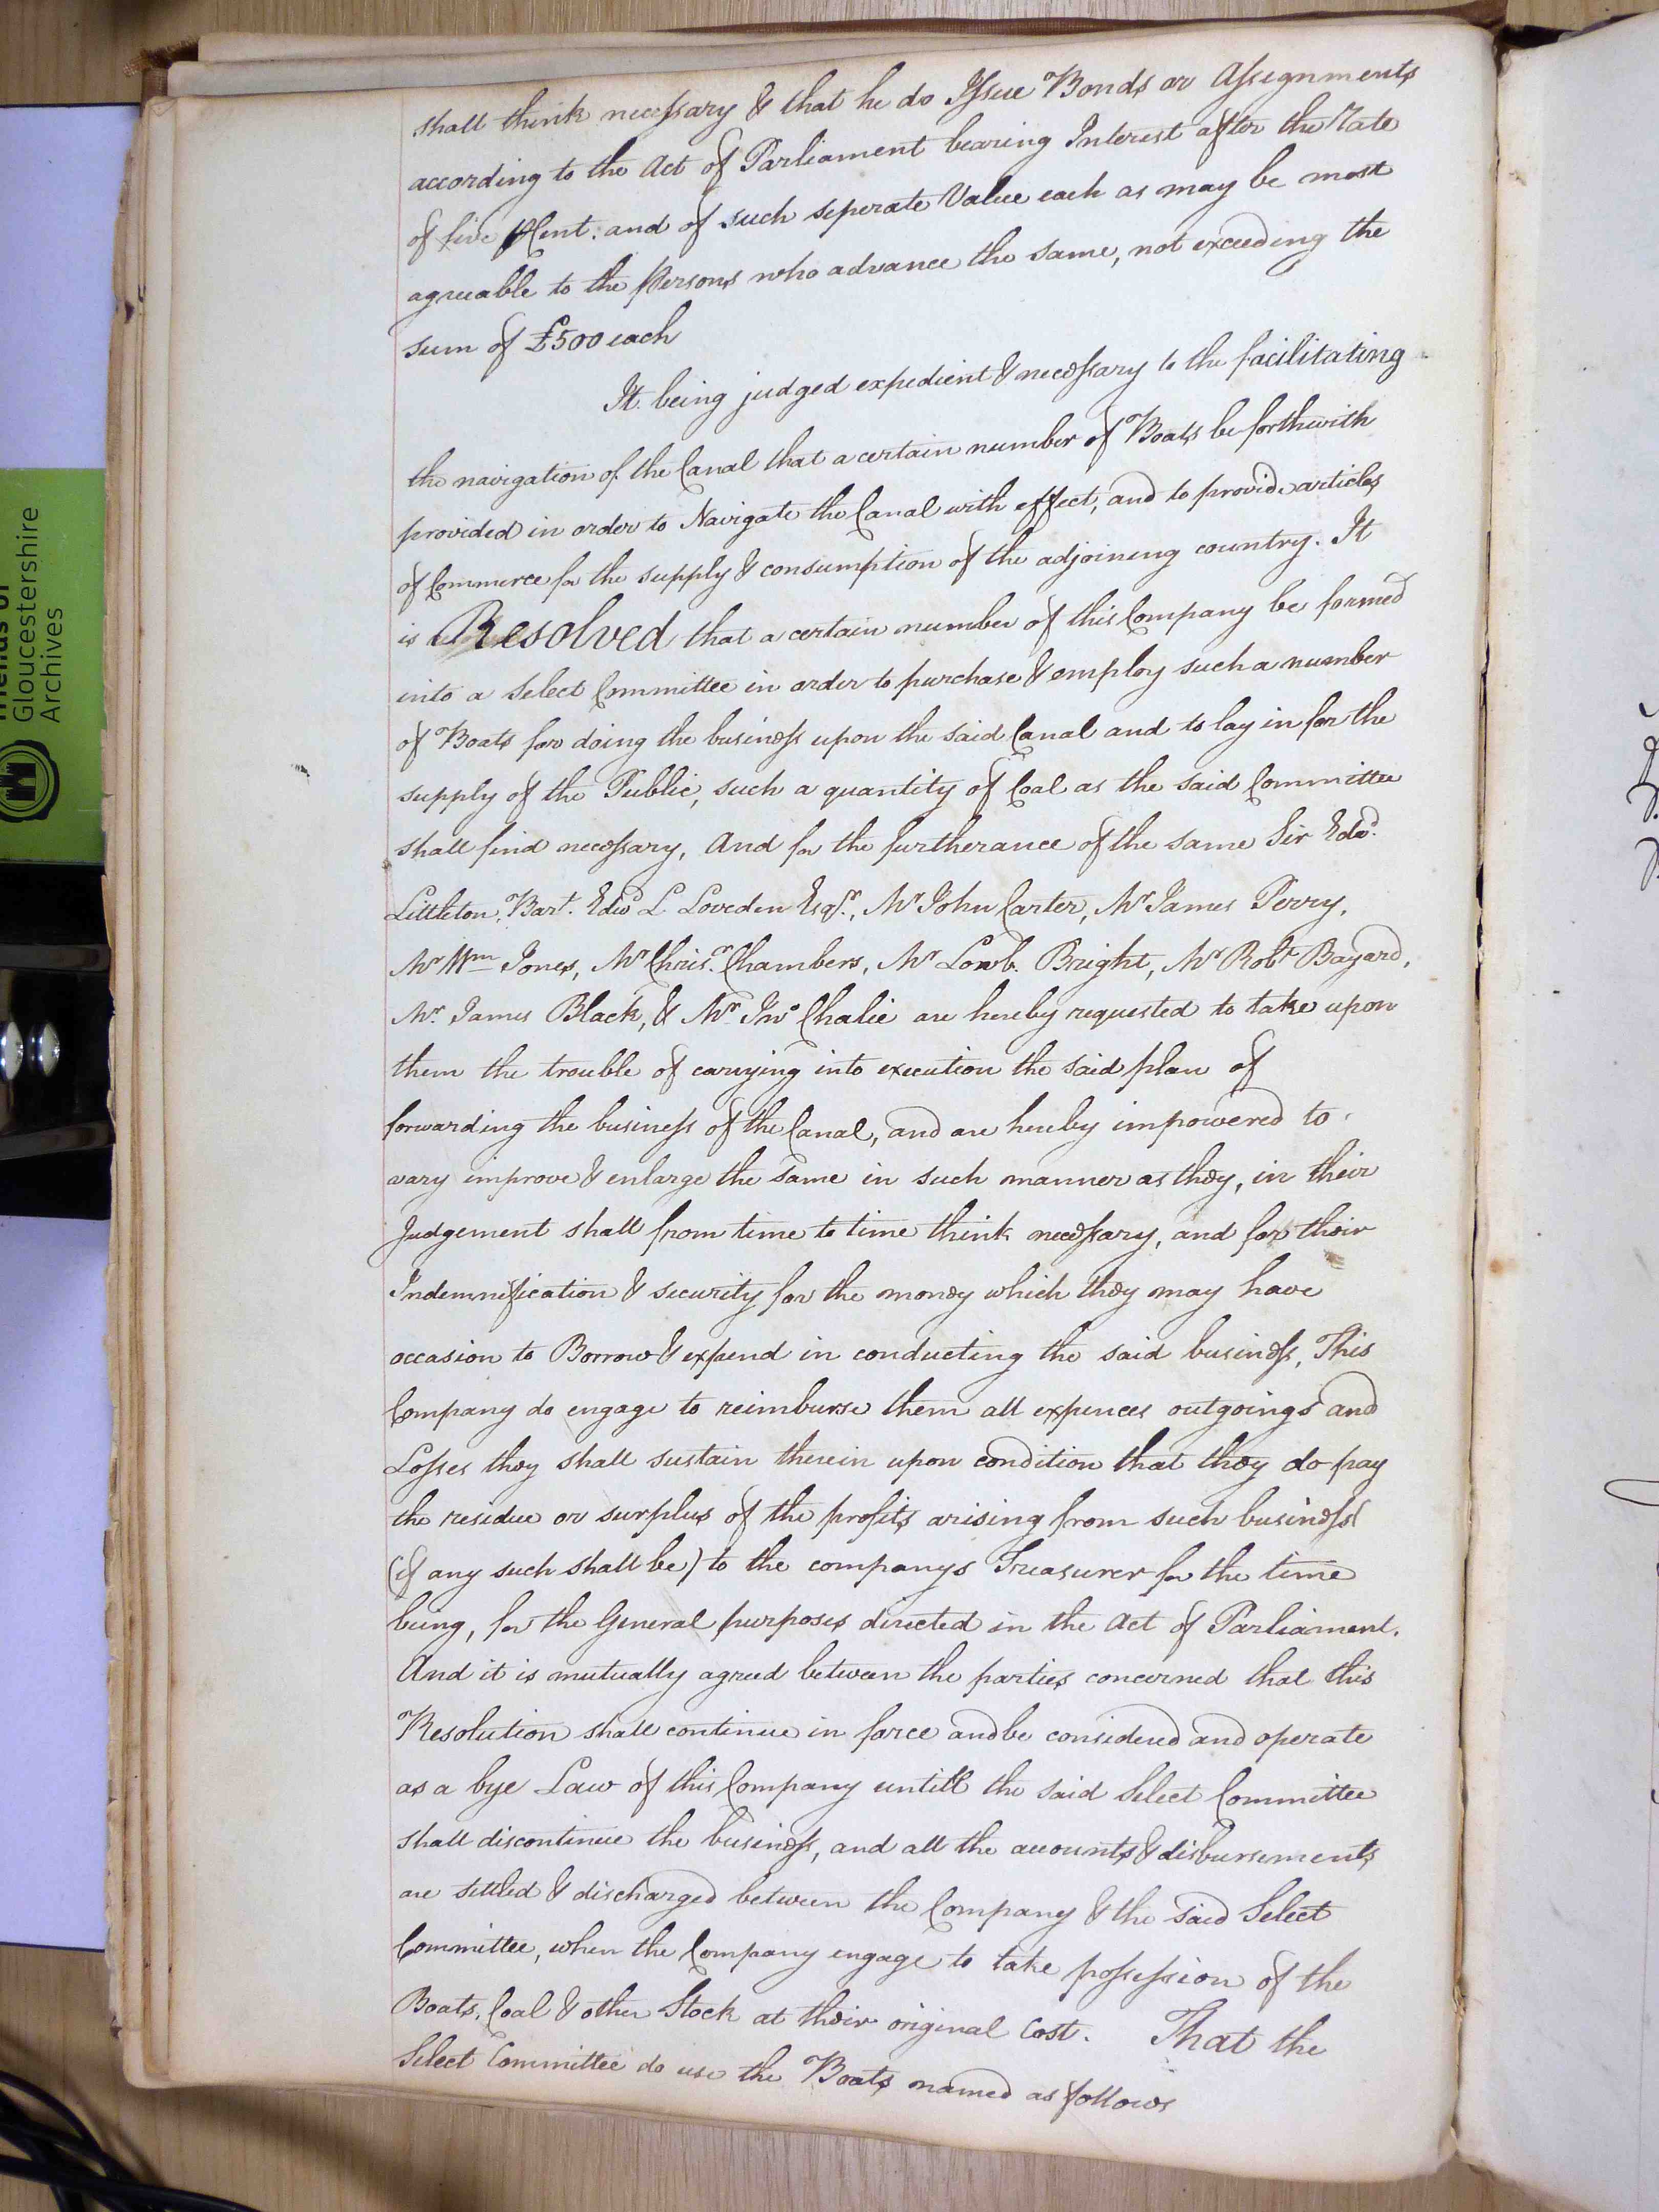 shall think necessary & that he do Issue Bonds or Assignments
according to the Act of Parliament bearing Interest after the Rate
of five ⅌Cent. and of such seperate Value each as may be most
agreeable to the persons who advance the same, not exceeding the
sum of £500 each
It being judged expedient & necessary to the facilitating
the navigation of the Canal that a certain number of Boats be forthwith
provided in order to Navigate the Canal with effect, and to provide articles
of Commerce for the supply & consumption of the adjoining country. It
is Resolved that a certain number of this Company be formed
into a Select Committee in order to purchase & employ such a number
of Boats for doing the business upon the said Canal and to lay in for the
supply of the Public, such a quantity of Coal as the said Committee
shall find necessary, And for the furtherance of the same Sir Edwd.
Littleton, Bart. Edwd L Loveden Esqr., Mr John Carter, Mr James Perry,
Mr Wm Jones, Mr Chrisr. Chambers, Mr Lowb. Bright, Mr Robt Bayard,
Mr. James Black, & Mr Jno Chalie are hereby requested to take upon
them the trouble of carrying into execution the said plan of
forwarding the business of the Canal, and are hereby impowered to
vary improve & enlarge the same in such manner as they, in their
Judgement shall from time to time think necessary, and for their
Indemnification & security for the money which they may have
occasion to Borrow & expend in conducting the said business, This
Company do engage to reimburse them all expences outgoings and
Losses they shall sustain therein upon condition that they do pay
the residue or surplus of the profits arising from such business
(if any such shall be) to the companys Treasurer for the time
being, for the General purposes directed in the Act of Parliament.
And it is mutually agreed between the parties concerned that this
Resolution shall continue in force and be considered and operate
as a bye Law of this Company untill the said Select Committee
shall discontinue the business, and all the accounts & disbursements
are settled & discharged between the Company & the said Select
Committee, when the Company engage to take possession of the
Boats, Coal & other Stock at their original Cost. That the
Select Committee do use the Boats named as follows
Gloucestershire
Archives